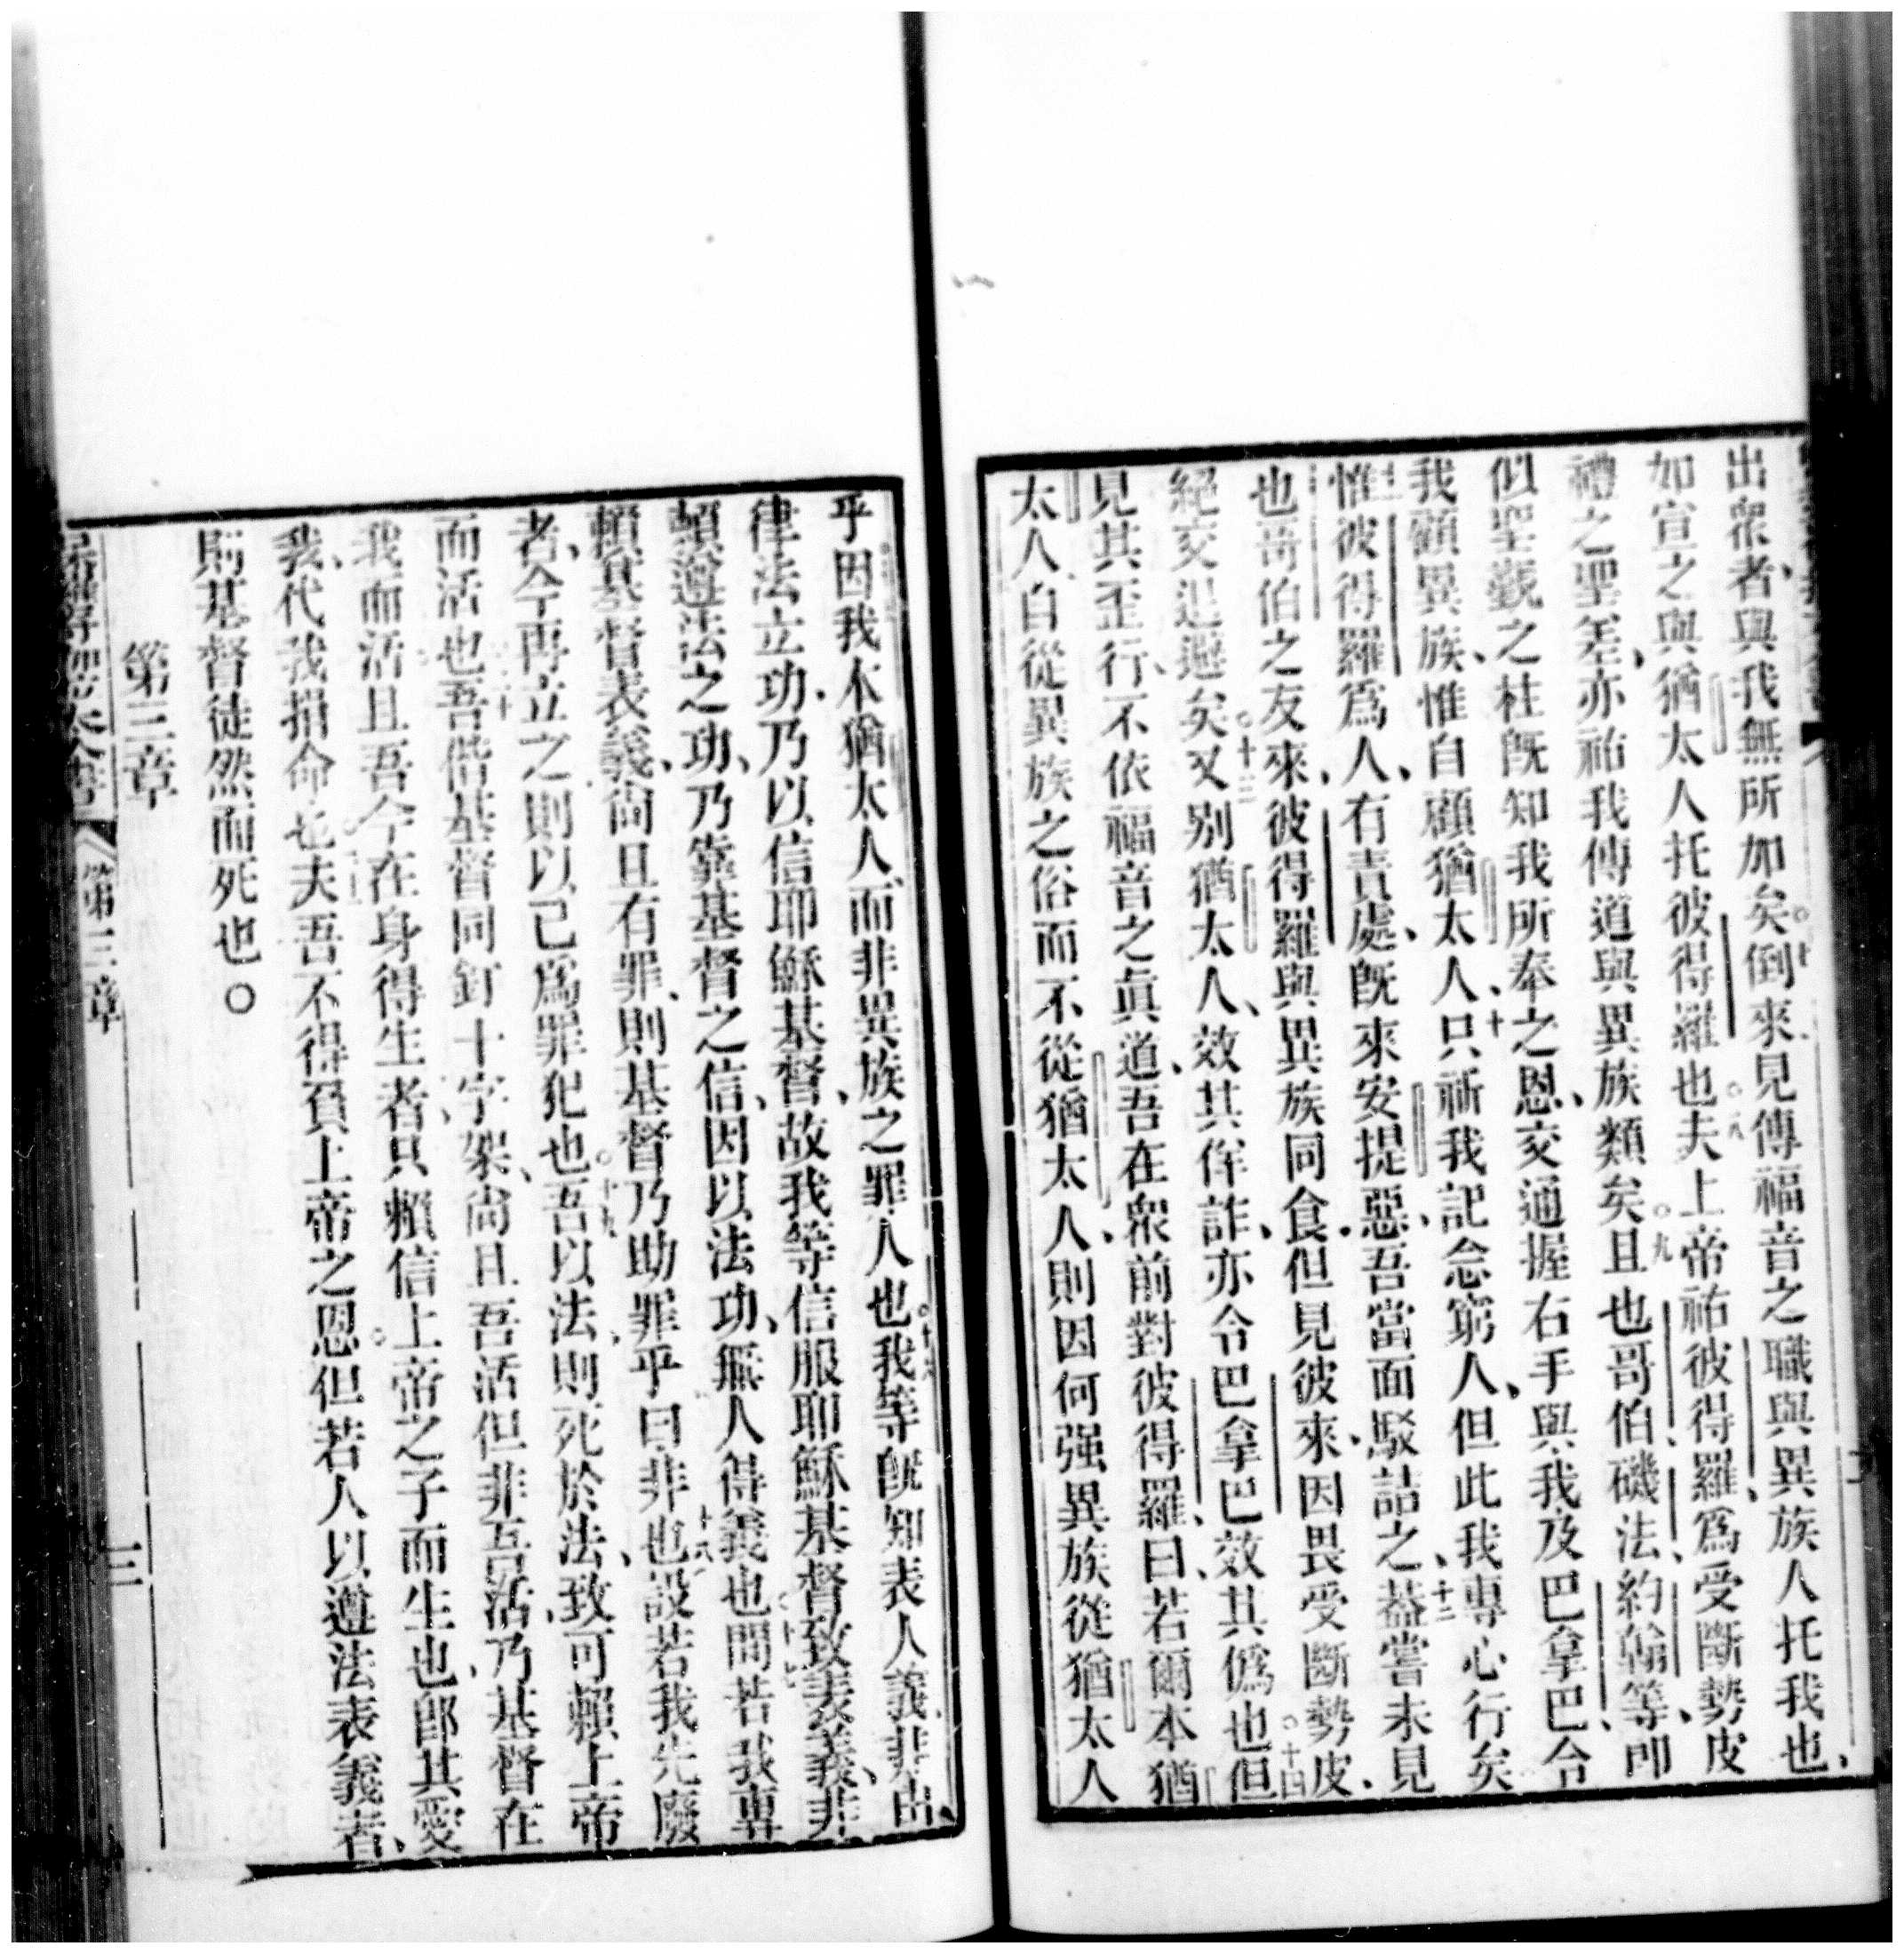 出衆者、與我無所加矣。○七倒來見傳福音之職與異族人托我也、
如宣之與猶太人托彼得羅也。○八夫上帝祐彼得羅、爲受斷勢皮
禮之聖差、亦祐我傳道與異族類矣。○九且也哥伯、磯法、約翰等、即
似聖觀之柱、旣知我所奉之恩、交通握右手與我及巴拿巴、令
我顧異族、惟自顧猶太人、十只祈我記念窮人、但此我專心行矣
十一惟彼得羅爲人、有責處、旣來安提惡、吾當面駁詰之、十二葢嘗未見
也哥伯之友來、彼得羅與異族同食、但見彼來、因畏受斷勢皮、
絕交退避矣。○十三又別猶太人、效其佯詐、亦令巴拿巴效其僞也。○十四但
見其歪行、不依福音之眞道、吾在衆前對彼得羅、曰、若爾本猶
太人、自從異族之俗而不從猶太人、則因何强異族從猶太人
乎因我本猶太人、而非異族之罪人也。我等旣知表人義、非由
律法立功、乃以信耶穌基督、故我等信服耶穌基督、致表義、非
賴遵法之功、乃靠基督之信、因以法功、無人得義也。○十七間若我專
賴基督表義、尙且有罪、則基督乃助罪乎、曰、非也。十八設若我先廢
者、今再立之、則以己爲罪犯也。○十九吾以法則死於法、致可賴上帝
而活也。二十吾偕基督同釘十字架、尙且吾活、但非吾活、乃基督在
我而活、且吾今在身得生者、只賴信上帝之子而生也、卽其愛
我、代我捐命也。夫吾不得負上帝之恩、但若人以遵法表義者、
則基督徒然而死也。○
第三章
第三章 三